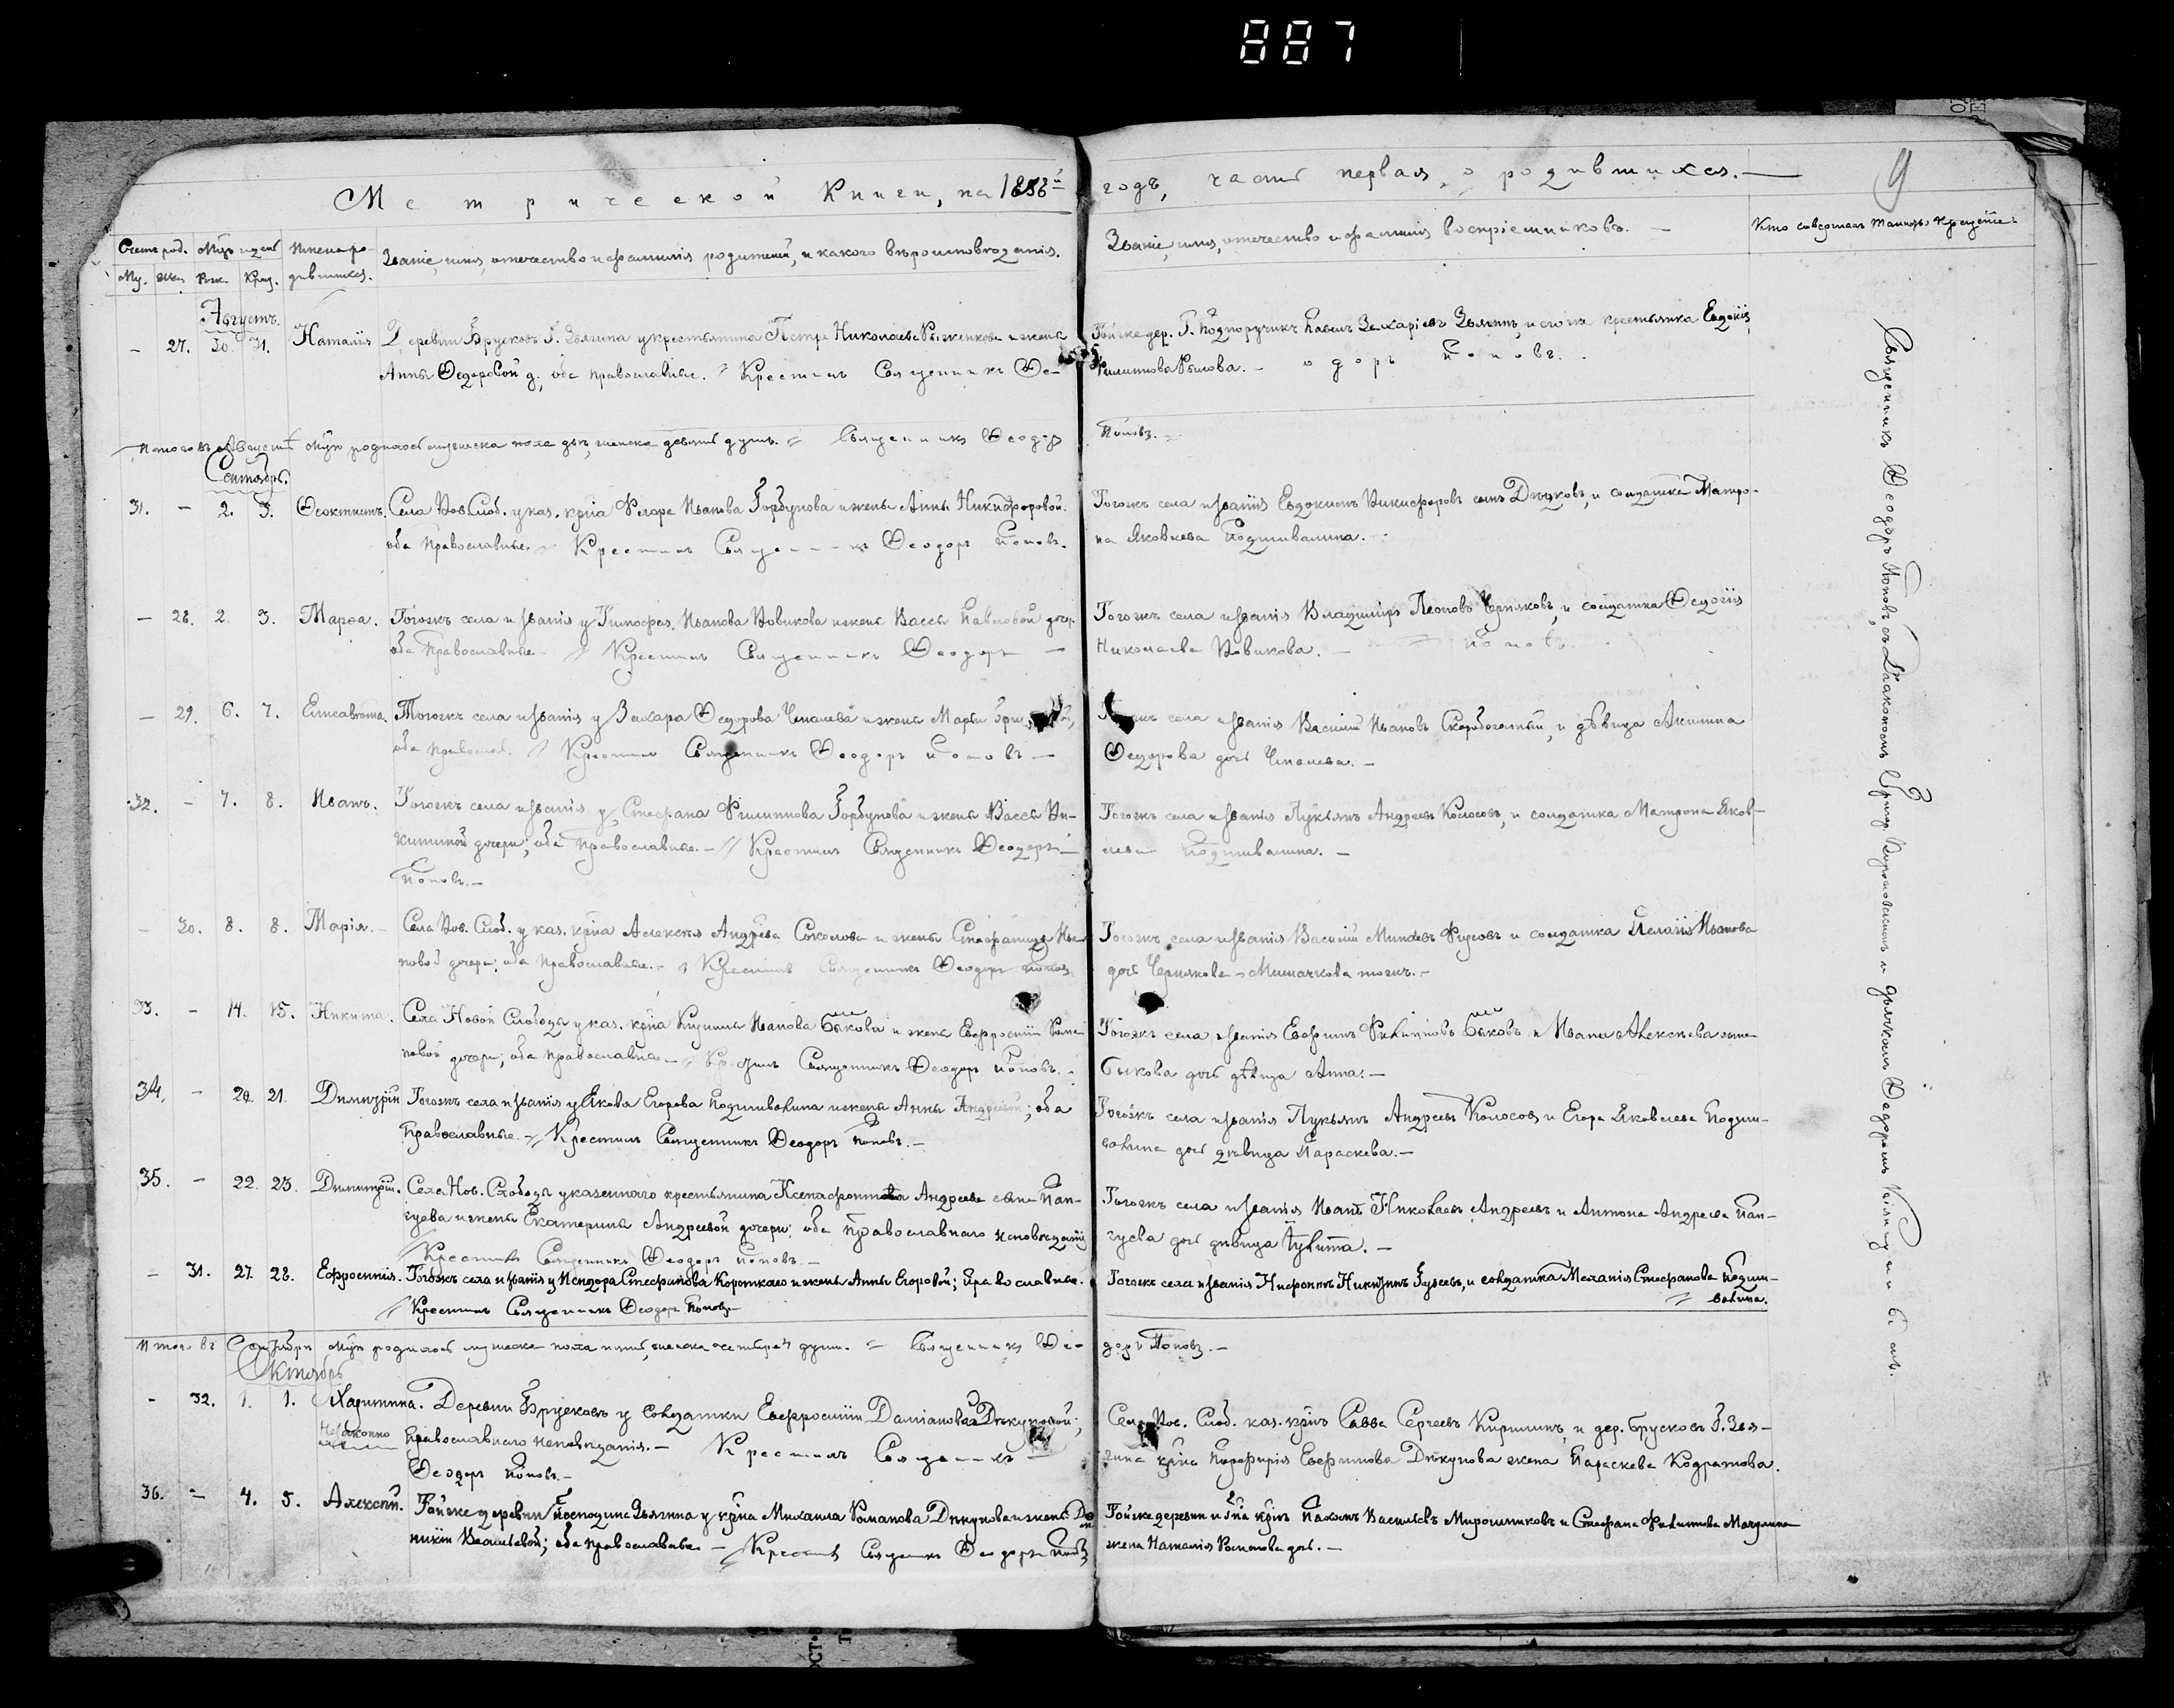 887
9
Метрической Книги, на 1858й годъ, часть первая, о родившихся.
Счетъ род. Мцъ и день Имена родившихся. Званіе, имя, отечество и фамилія родителей, и какого вѣроисповѣданія. Званіе, имя, отечество и фамилія воспріемниковъ. Кто совершалъ таинство крещенія
Му. Жен. Рож. Крещ.
Августъ.
– 27. 30. 31. Наталія Деревни Брусковъ Г. Звягина у крестьянина Петра Николаева и жены
Анны Ѳедоровой д., оба православные. Крестилъ Священникъ Ѳео-
Той же дер. Г. Подпоручикъ Павелъ Захаріевъ Звягинъ, и его же крестьянка Евдокія
Филиппова. – доръ Поповъ.
Итого въ Августѣ мцѣ родилось мужеска пола женска девять душъ. Священникъ Ѳеодоръ
Поповъ.
Сентябрь.
31. – 2. 3. Ѳеоктистъ. Села Нов. Слоб. у каз. кр-на Флора Иванова Горбунова и жены Анны Никифоровой.
оба православные. Крестилъ Священникъ Ѳеодоръ Поповъ.
Тогожъ села и званія Евдокимъ Никифоровъ сынъ, и солдатка Матро-
на Яковлева Подшивалина.
– 28. 2. 3. Марѳа. Тогожъ села и званія у Тимофея Иванова Новикова и жены Вассы Павловой дочер.
оба православные Крестилъ Священникъ Ѳеодоръ –
Тогожъ села и званія Владиміръ Чернковъ, и солдатка
Николаева Новикова. – Поповъ.
– 29. 6. 7. Елисавета. Тогожъ села и званія у Захара Ѳедорова и жены Марѳы
оба православ. Крестилъ Священникъ Ѳеодоръ Поповъ –
села и званія Василій Ивановъ, и дѣвица Акилина
Ѳедорова дочь. –
32. – 7. 8. Иванъ. Тогожъ села и званія у Стефана Филиппова Горбунова и жены Вассы Ни-
китиной дочери; оба православные. – Крестилъ Священникъ Ѳеодоръ –
Поповъ. –
Тогожъ села и званія Лукьянъ Андреевъ Колосовъ, и солдатка Матрона Яков-
лева Подшивалина. –
– 30. 8. 8. Марія. – Села Нов. Слоб. у каз. кр-на Алексѣя Андрѣева Соколова и жены Стефаниды Ива-
новой дочери; оба православные. – Крестилъ Священникъ Ѳеодоръ Поповъ.
Тогожъ села и званія Василій Минаевъ и солдатка Пелагія Иванова
дочь Чернякова – тожъ. –
33. – 14. 15. Никита. Села Новой Слободы у каз. кр-на Иванова Быкова и жены Евфросиніи
новой дочери; оба православные – Крестилъ Священникъ Ѳеодоръ Поповъ. –
Тогожъ села и званія Евфимъ Филипповъ Быковъ и Ивана Алексѣева сына
Быкова дочь дѣвица Анна. –
34. – 20. 21. Димитрій Тогожъ села и званія у Якова Егорова Подшивалина и жены Анны Андреевой; оба
Православные. – Крестилъ Священникъ Ѳеодоръ Поповъ. –
Тогожъ села и званія Лукьянъ Андреевъ Колосовъ и Егора Яковлева Подши-
валина дочь дѣвица Параскева. –
35. – 22. 23. Димитрій. Села Нов. Слободы у казеннаго крестьянина Ксенофонтова Андреева сына Пан-
гуева и жены Екатерины Андреевой дочери; оба православнаго исповѣданія
Крестилъ Священникъ Ѳеодоръ Поповъ. –
Тогожъ села и званія Иванъ Николаевъ Андреевъ и Антона Андреева Пан-
гуева дочь дѣвица. –
– 31. 27. 28. Ефросинія. Тогожъ села и званія у Исидора Стефанова Короткаго и жены Анны Егоровой; православные.
Крестилъ Священникъ Ѳеодоръ Поповъ –
Тогожъ села и званія Нифонтъ Никитинъ Гузеевъ, и солдатка Меланія Стефанова Подши-
валина.
Итого въ Сентябрѣ мцѣ родилось мужеска пола пять, женска четыре душъ. – Священникъ Ѳео-
доръ Поповъ. –
Октябрь
– 32. 1. 1. Харитина. Деревни Брусковъ у солдатки Евфросиніи Даміановой Дѣкуновой;
Незаконно Православнаго исповѣданія. – Крестилъ Священникъ –
Ѳеодоръ Поповъ. –
Села Нов. Слоб. каз. кр-нъ Савва Сергѣевъ Кирилинъ, и дер. Брусковъ Г. Звя-
гина кр-на Порфирія Евфимова Дѣкунова жена Параскева Кодратова.
36. – 4. 5. Алексѣй. Той же деревни Господина Звягина у кр-на Михаила Романова Дѣкунова и жены До-
Васильевой; оба православные – Крестилъ Священникъ Ѳеодоръ Поповъ
Той же деревни и Г-на кр-нъ Пахомъ Васильевъ Мирошниковъ и Стефана Филиппова
жена Наталія Романова дочь. –
Священникъ Ѳеодоръ Поповъ, съ Діакономъ и дьячкомъ Ѳедоромъ